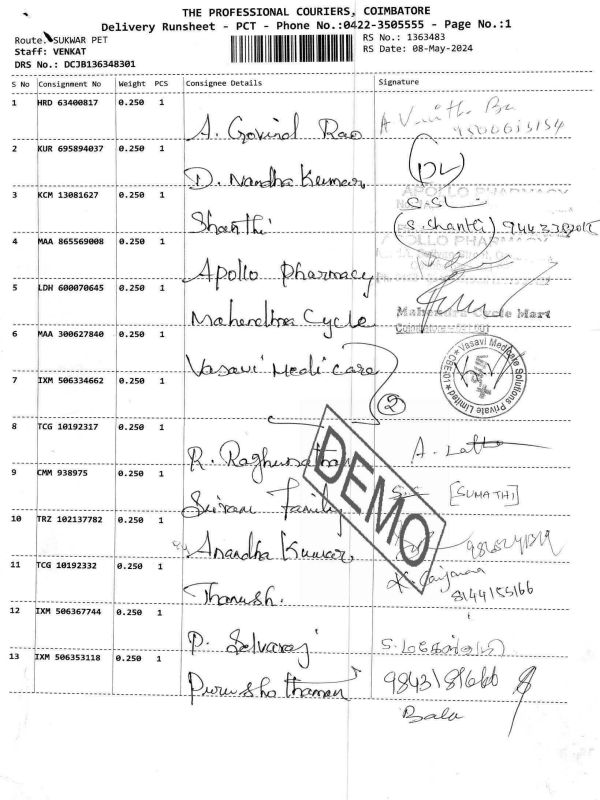 THE PROFESSIONAL COURIERS, COIMBATORE
Delivery Runsheet - PCT - Phone No.:0422-3505555 - Page No.:1
Route: SUKWAR PET
RS No.: 1363483
Staff: VENKAT
RS Date: 08-May-2024
DRS No.: DCJB136348301
S No Consignment No Weight PCS Consignee Details Signature
1 HRD 63400817 0.250 1
A. Govind Rao
2 KUR 695894037 0.250 1
D. Nandha Kumar
3 KCM 13081627 0.250 1
APOLLO PHARMACY
Shanthi
(S. Shanthi)
4 MAA 865569008 0.250 1
APOLLO PHARMACY
Apollo Pharmacy
5 LDH 600070645 0.250 1
Mahendra Cycle Mart
Mahendra Cycle
6 MAA 300627840 0.250 1
Vasavi Medicare
Vasavi Medicate Solutions Private Limited
7 IXM 506334662 0.250 1
2
8 TCG 10192317 0.250 1
R. Raghunathan
A. Latha
DEMO
9 CMM 938975 0.250 1
[SUMATHI]
Sriram Family
10 TRZ 102137782 0.250 1
Anandha Kumar
11 TCG 10192332 0.250 1
8144155166
Thanush.
12 IXM 506367744 0.250 1
P. Selvaraj
13 IXM 506353118 0.250 1
Purushothaman
9843181666
Bala